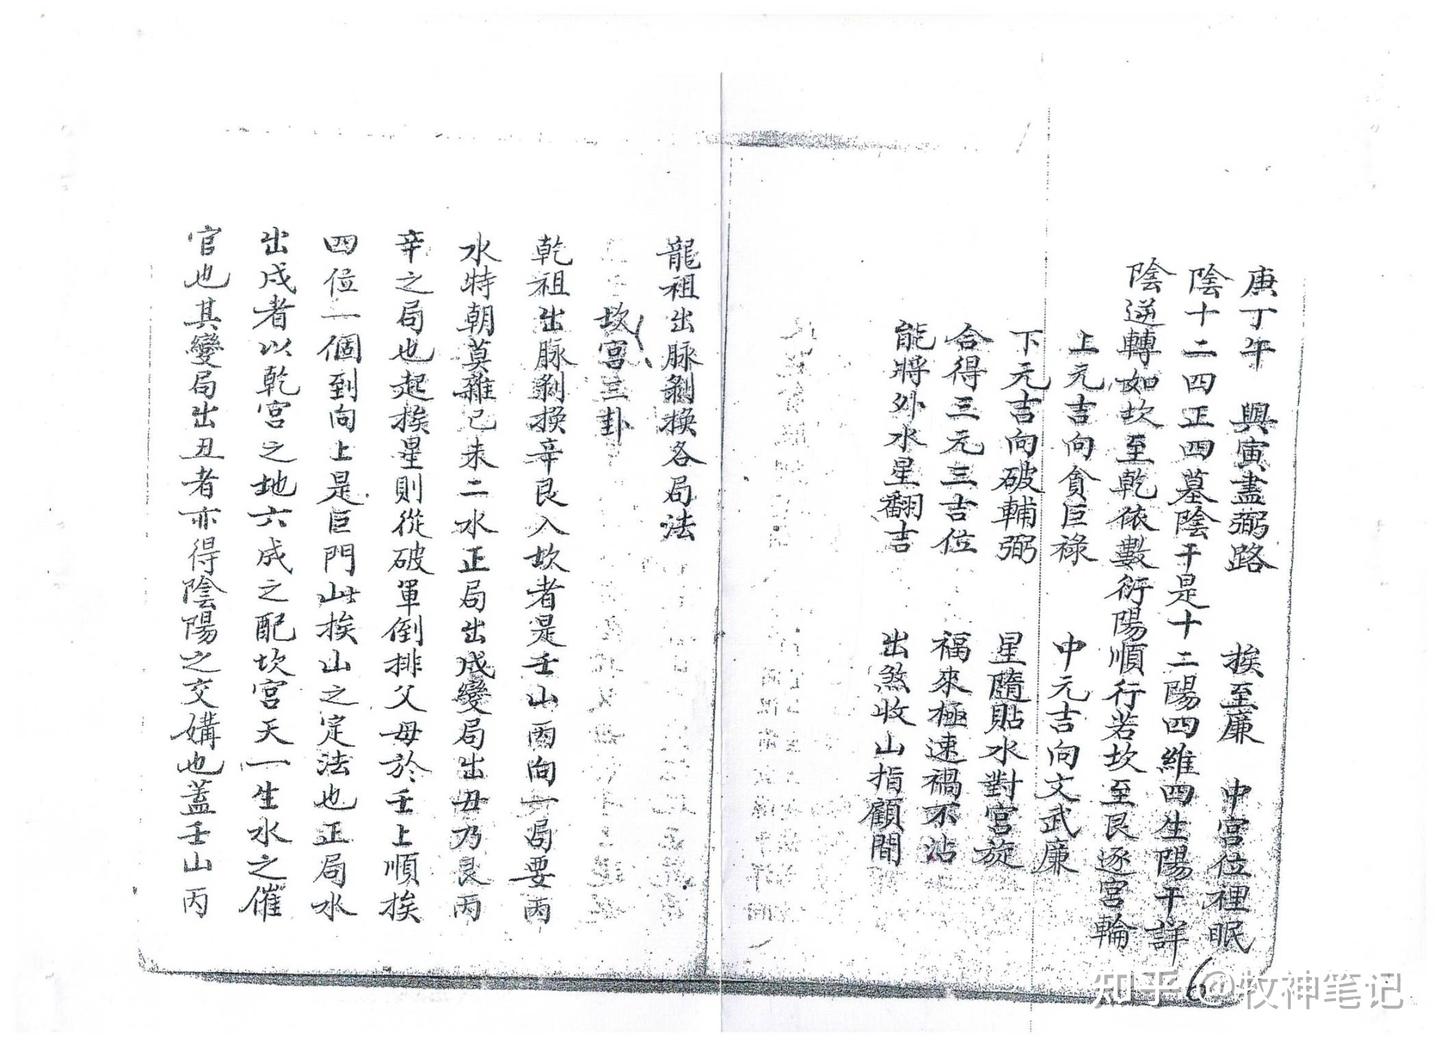 庚丁午　與寅盡弼路　挨至廉　中宮位裡眠
陰十二四正四墓陰干是十二陽四維四生陽干詳
陰逆轉如坎至乾依數衍陽順行若坎至艮逐宮輪
上元吉向貪巨祿　中元吉向文武廉
下元吉向破輔弼　星隨貼水對宮旋
合得三元三吉位　福來極速禍不沾
能將外水星翻吉　出煞收山指顧間
龍祖出脉剝換各局法
坎宮三卦
乾祖出脉剝換辛艮入坎者是壬山丙向一局要丙
水特朝莫雜已未二水正局出戍變局出丑乃艮丙
辛之局也起挨星則從破軍倒排父母於壬上順挨
四位一個到向上是巨門此挨山之定法也正局水
出戍者以乾宮之地六成之配坎宮天一生水之催
官也其變局出丑者亦得陰陽之交媾也蓋壬山丙
6
知乎 @牧神笔记